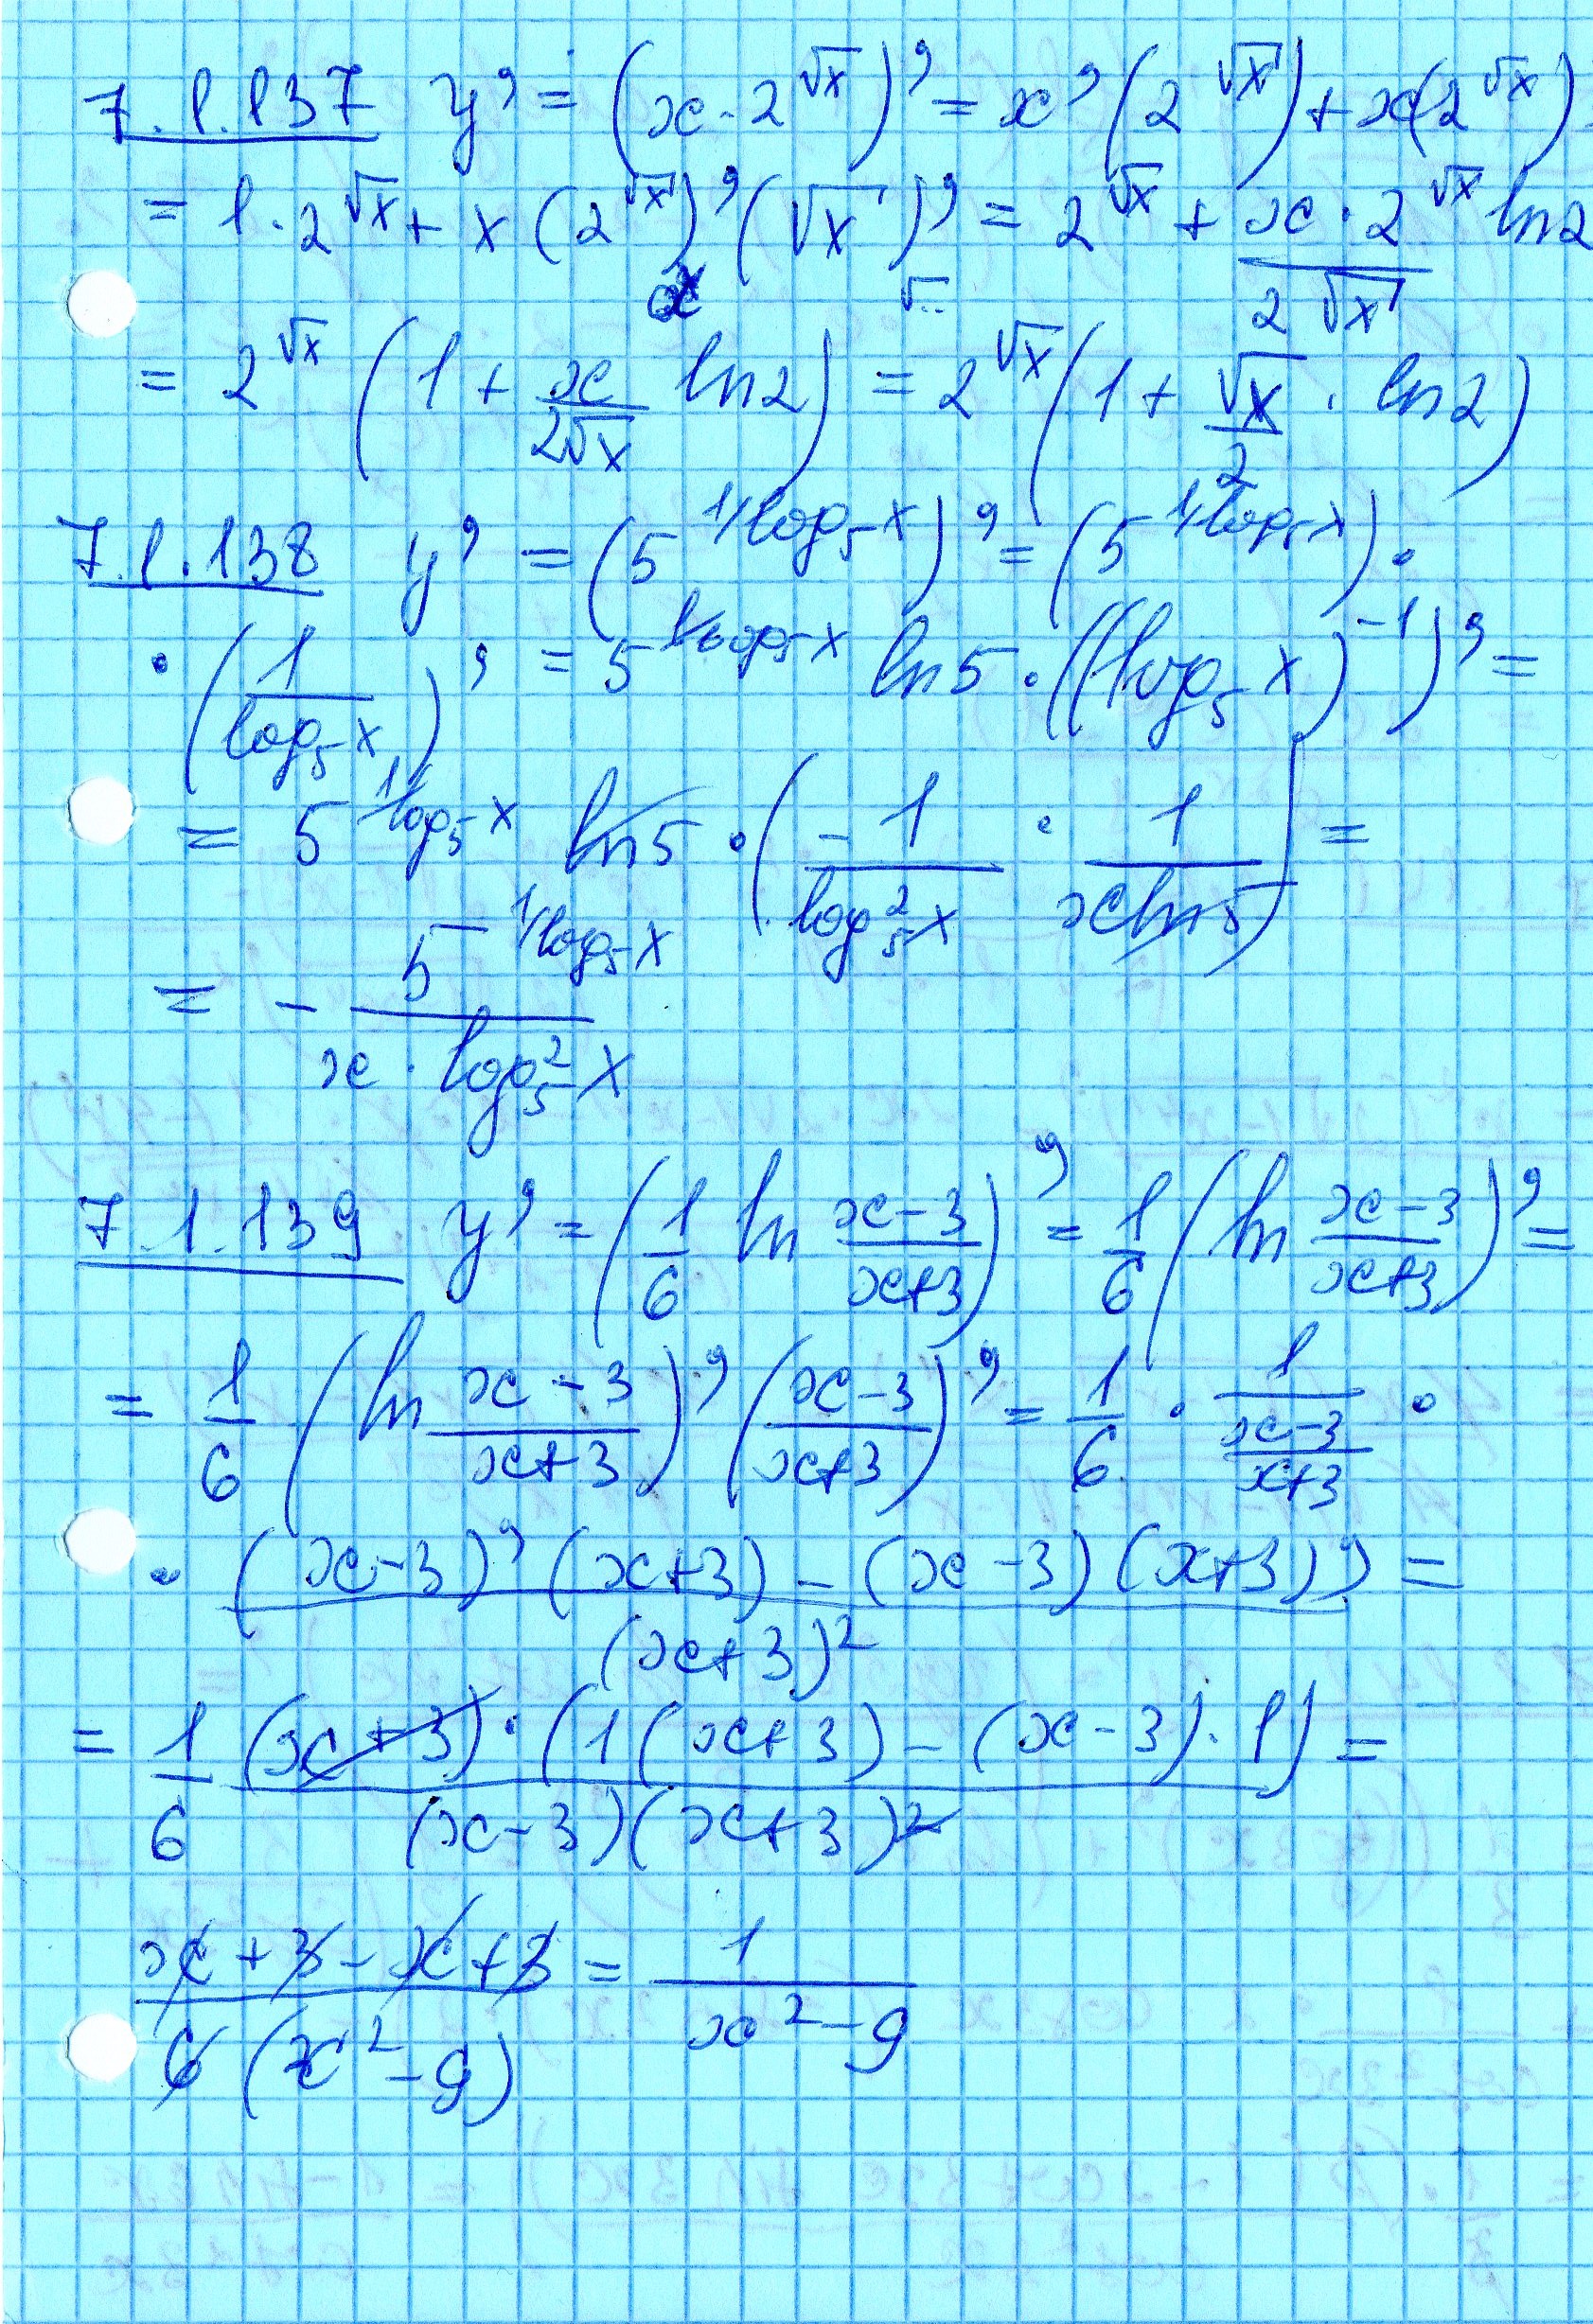 7.1.137 y' = (x · 2^√x)' = x' (2^√x) + x(2^√x)
= 1 · 2^√x + x (2^√x)' (√x)' = 2^√x + (x · 2^√x)/(2√x) ln2
√..
= 2^√x (1 + x/(2√x) ln2) = 2^√x (1 + √x/2 · ln2)
7.1.138 y' = (5^(1/log₅x))' = (5^(1/log₅x)) ·
· (1/(log₅x))' = 5^(1/log₅x) ln5 · ((log₅x)^-1)' =
= 5^(1/log₅x) ln5 · (-1/(log₅²x) · 1/(x ln5)) =
= - 5^(1/log₅x)/(x · log₅²x)
7.1.139 y' = (1/6 ln (x-3)/(x+3))' = 1/6 (ln (x-3)/(x+3))' =
= 1/6 (ln (x-3)/(x+3))' ((x-3)/(x+3))' = 1/6 · 1/((x-3)/(x+3)) ·
· ((x-3)' (x+3) - (x-3) (x+3)')/((x+3)²) =
= 1/6 ((x+3) · (1(x+3) - (x-3) · 1))/((x-3)(x+3)²) =
(x+3-x+3)/(6(x²-9)) = 1/(x²-9)